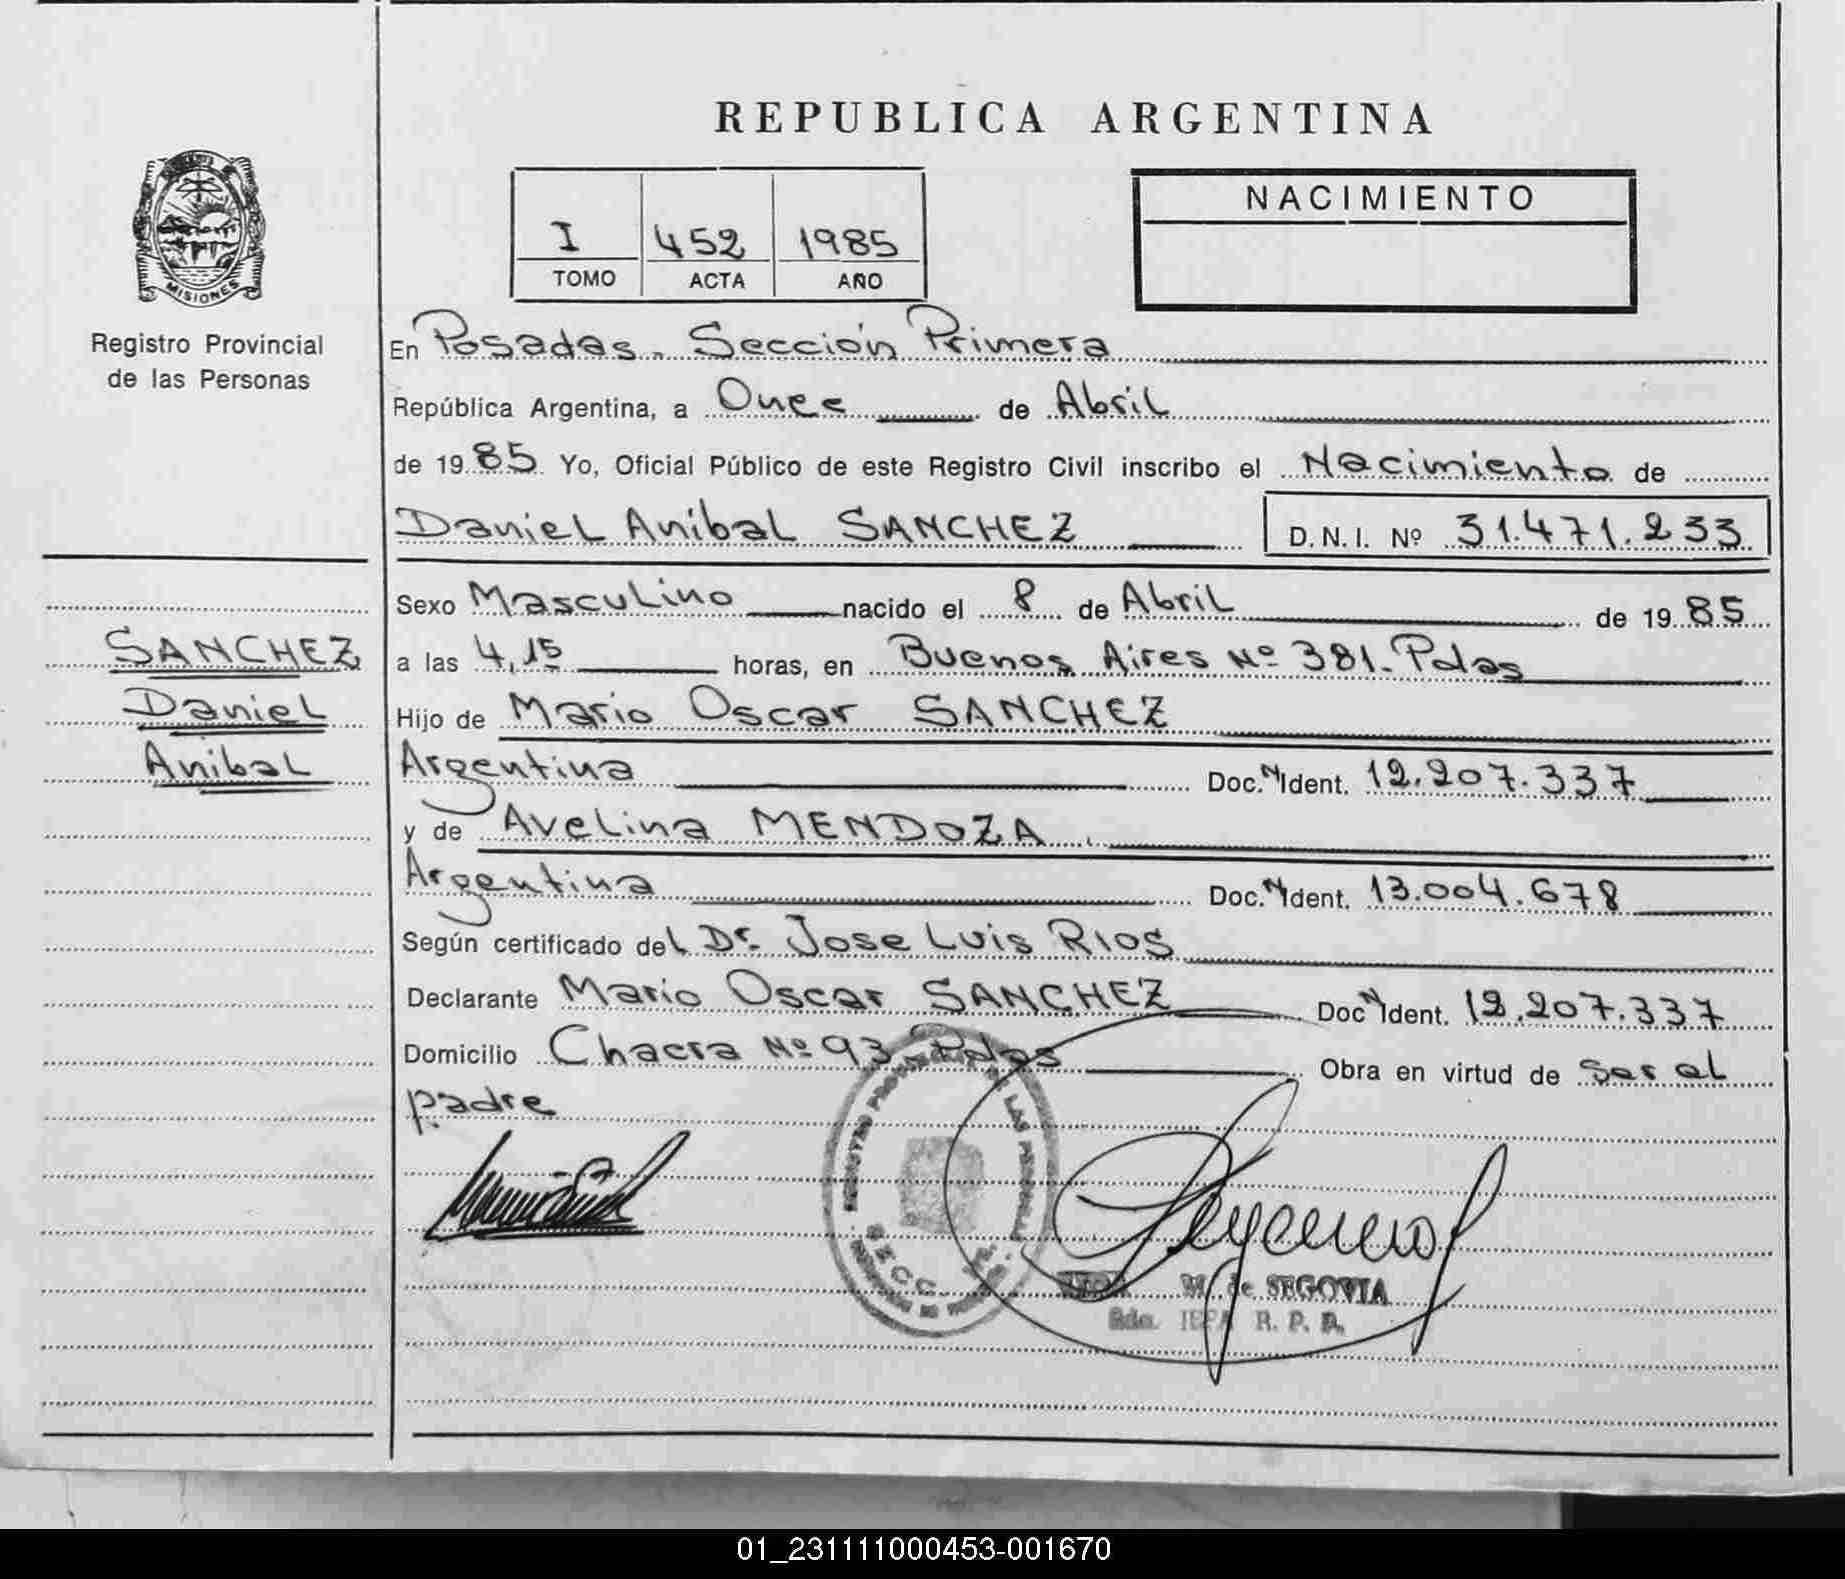 REPUBLICA ARGENTINA
MISIONES
Registro Provincial
de las Personas
I 452 1985
TOMO ACTA AÑO
NACIMIENTO
En Posadas. Sección Primera
República Argentina, a Once de Abril
de 1985 Yo, Oficial Público de este Registro Civil inscribo el Nacimiento de
Daniel Anibal SANCHEZ D.N.I. Nº 31.471.233
Sexo Masculino nacido el 8 de Abril de 1985
a las 4,15 horas, en Buenos Aires Nº 381. Pdas
Hijo de Mario Oscar SANCHEZ
Argentina Doc. N Ident. 12.207.337
y de Avelina MENDOZA
Argentina Doc. N Ident. 13.004.678
Según certificado del Dr. Jose Luis RIOS
Declarante Mario Oscar SANCHEZ Doc N Ident. 12.207.337
Domicilio Chacra Nº 93 Pdas Obra en virtud de ser el
padre
SANCHEZ
Daniel
Anibal
M. de SEGOVIA
R. P. P.
SECC.
01_231111000453-001670